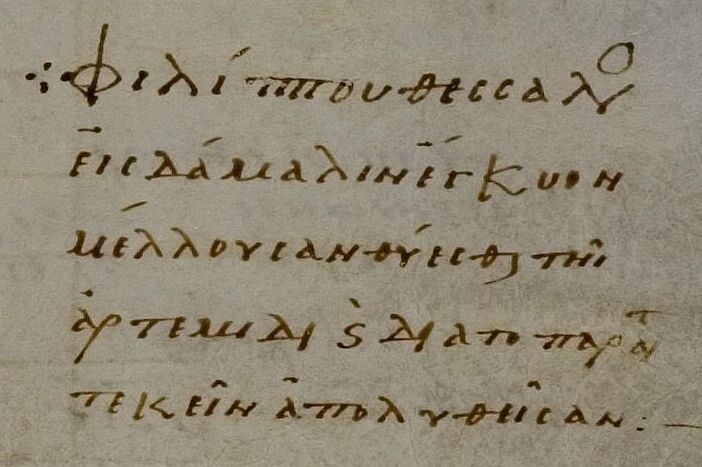 ⁘ Φιλίππου θεσσαλνο
εἰς δάμαλιν ἔγκυον
μέλλουσαν θύεσθϗ τῆι
ἀρτεμιδι ϛ̀ δια το παρατ
τεκεῖν ἀπολυθεῖσαν :-